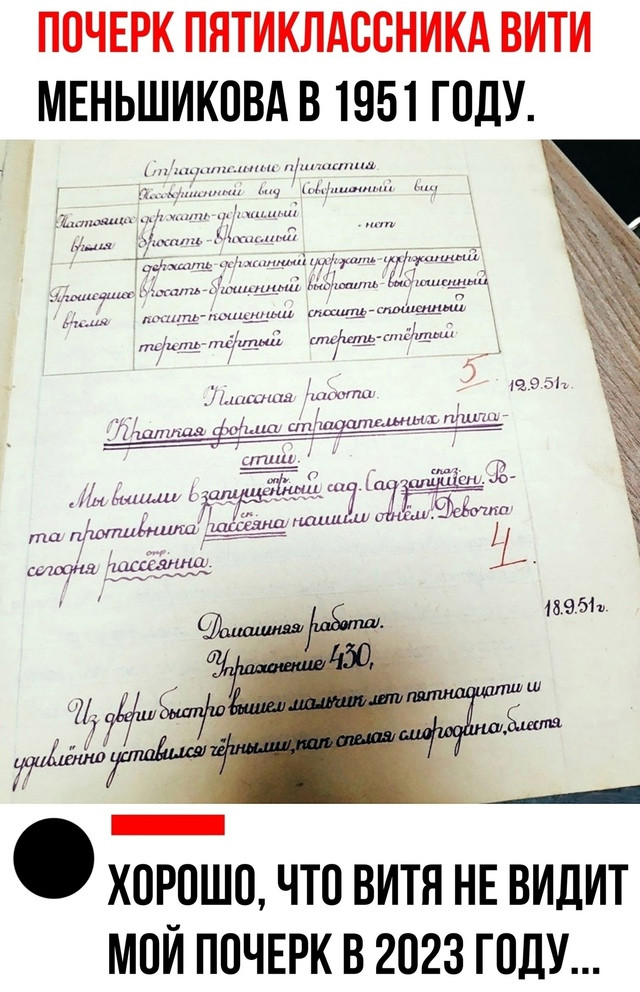 ПОЧЕРК ПЯТИКЛАССНИКА ВИТИ
МЕНЬШИКОВА В 1951 ГОДУ.
Страдательные причастия
Несовершенный вид Совершенный вид
Настоящее время держать-держимый нет
бросать-бросаемый
Прошедшее время держать-держанный удержать-удержанный
бросать-брошенный выбросить-выброшенный
косить-кошенный скосить-скошенный
тереть-тёртый стереть-стёртый
5
Классная работа. 12.9.51г.
Краткая форма страдательных прича-
стий.
опр. сказ.
Мы вышли в запущенный сад. Сад запущен. Ро-
ск.
та противника рассеяна нашим огнём. Девочка
опр.
сегодня рассеянна.
4.
Домашняя работа. 18.9.51г.
Упражнение 430,
Из двери быстро вышел мальчик лет пятнадцати и
удивлённо уставился чёрными, как спелая смородина, блестя
ХОРОШО, ЧТО ВИТЯ НЕ ВИДИТ
МОЙ ПОЧЕРК В 2023 ГОДУ...